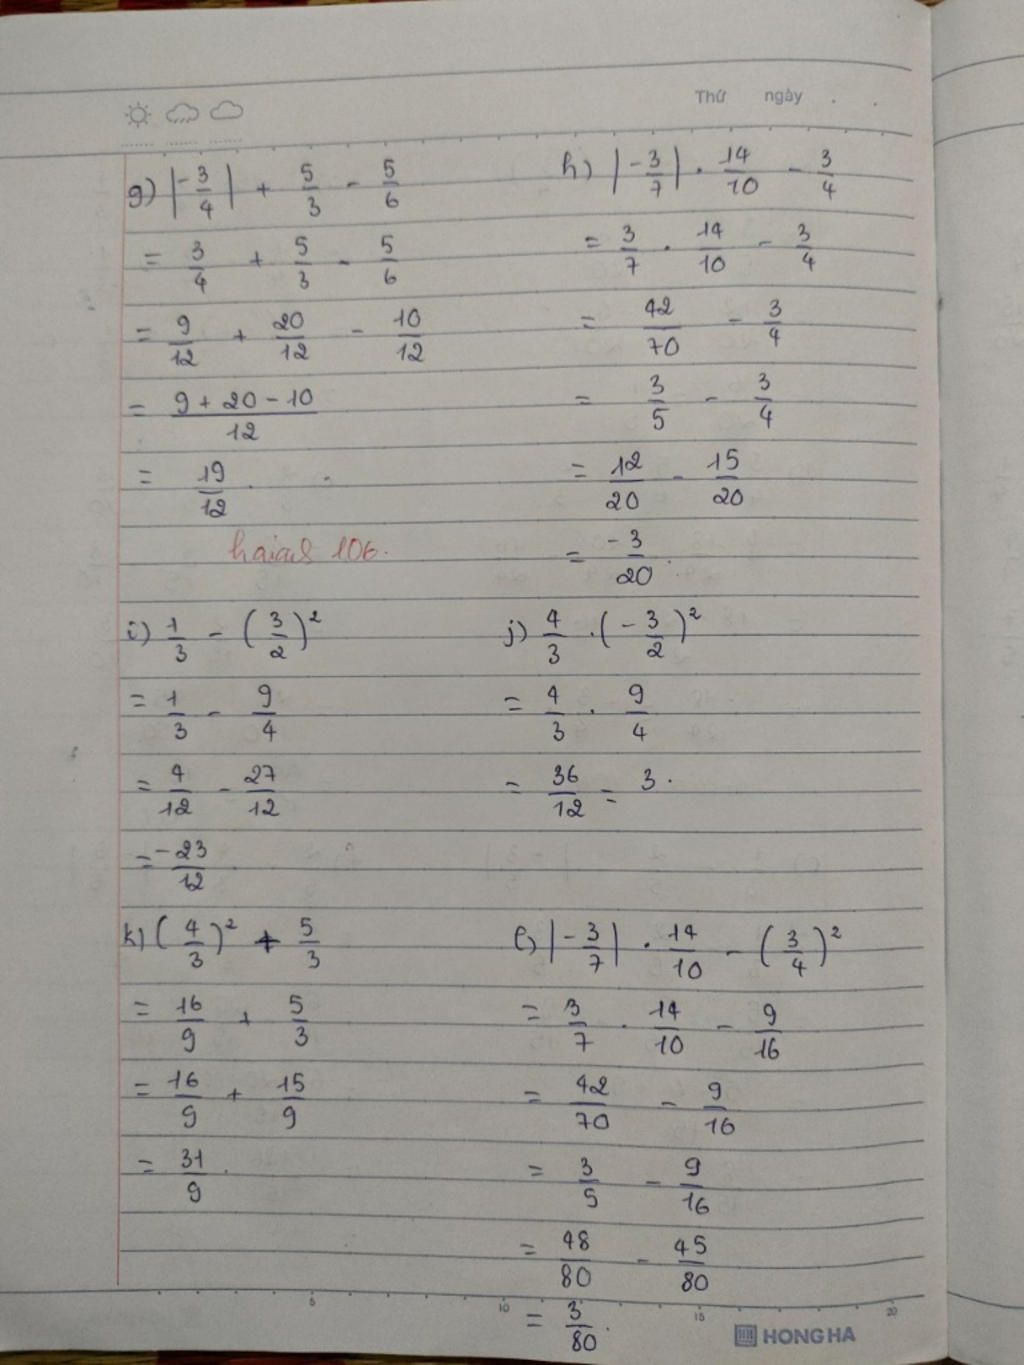 Thứ ngày
g) |-3/4| + 5/3 - 5/6
= 3/4 + 5/3 - 5/6
= 9/12 + 20/12 - 10/12
= (9 + 20 - 10)/12
= 19/12 .
haians 106.
h) |-3/7| . 14/10 - 3/4
= 3/7 . 14/10 - 3/4
= 42/70 - 3/4
= 3/5 - 3/4
= 12/20 - 15/20
= -3/20 .
i) 1/3 - (3/2)²
= 1/3 - 9/4
= 4/12 - 27/12
= -23/12
j) 4/3 . (-3/2)²
= 4/3 . 9/4
= 36/12 = 3 .
k) (4/3)² + 5/3
= 16/9 + 5/3
= 16/9 + 15/9
= 31/9 .
l) |-3/7| . 14/10 - (3/4)²
= 3/7 . 14/10 - 9/16
= 42/70 - 9/16
= 3/5 - 9/16
= 48/80 - 45/80
= 3/80 .
5 10 15 20
HONG HA